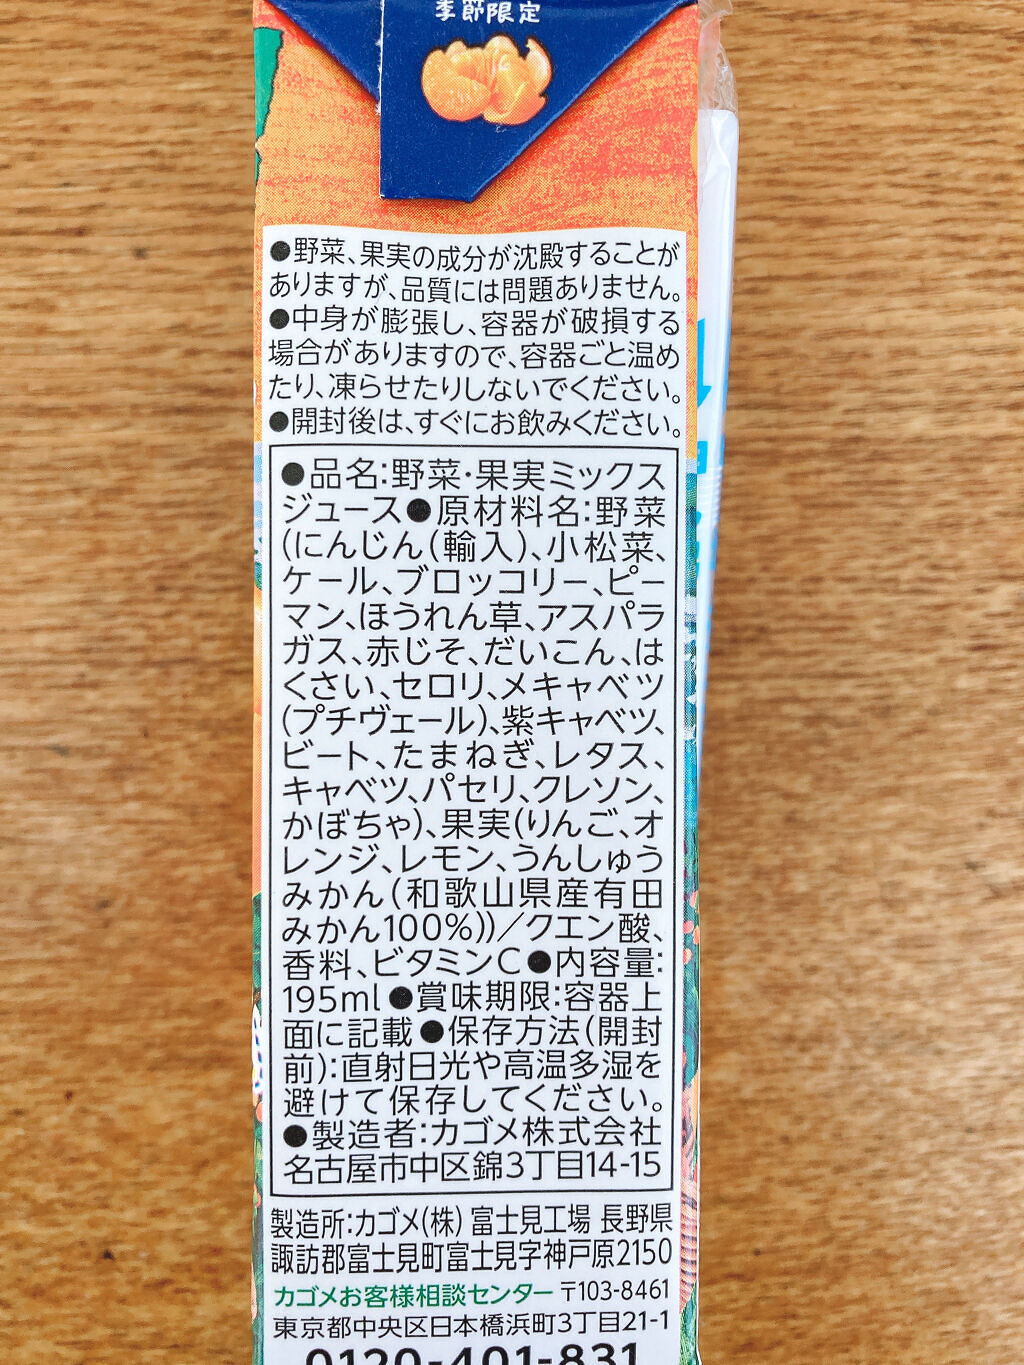 季節限定
●野菜、果実の成分が沈殿することが
ありますが、品質には問題ありません。
●中身が膨張し、容器が破損する
場合がありますので、容器ごと温め
たり、凍らせたりしないでください。
●開封後は、すぐにお飲みください。
●品名:野菜・果実ミックス
ジュース●原材料名:野菜
(にんじん(輸入)、小松菜、
ケール、ブロッコリー、ピー
マン、ほうれん草、アスパラ
ガス、赤じそ、だいこん、は
くさい、セロリ、メキャベツ
(プチヴェール)、紫キャベツ、
ビート、たまねぎ、レタス、
キャベツ、パセリ、クレソン、
かぼちゃ)、果実(りんご、オ
レンジ、レモン、うんしゅう
みかん(和歌山県産有田
みかん100%))/クエン酸、
香料、ビタミンC●内容量:
195ml●賞味期限:容器上
面に記載●保存方法(開封
前):直射日光や高温多湿を
避けて保存してください。
●製造者:カゴメ株式会社
名古屋市中区錦3丁目14-15
製造所:カゴメ(株) 富士見工場 長野県
諏訪郡富士見町富士見字神戸原2150
カゴメお客様相談センター 〒103-8461
東京都中央区日本橋浜町3丁目21-1
0120-401-831